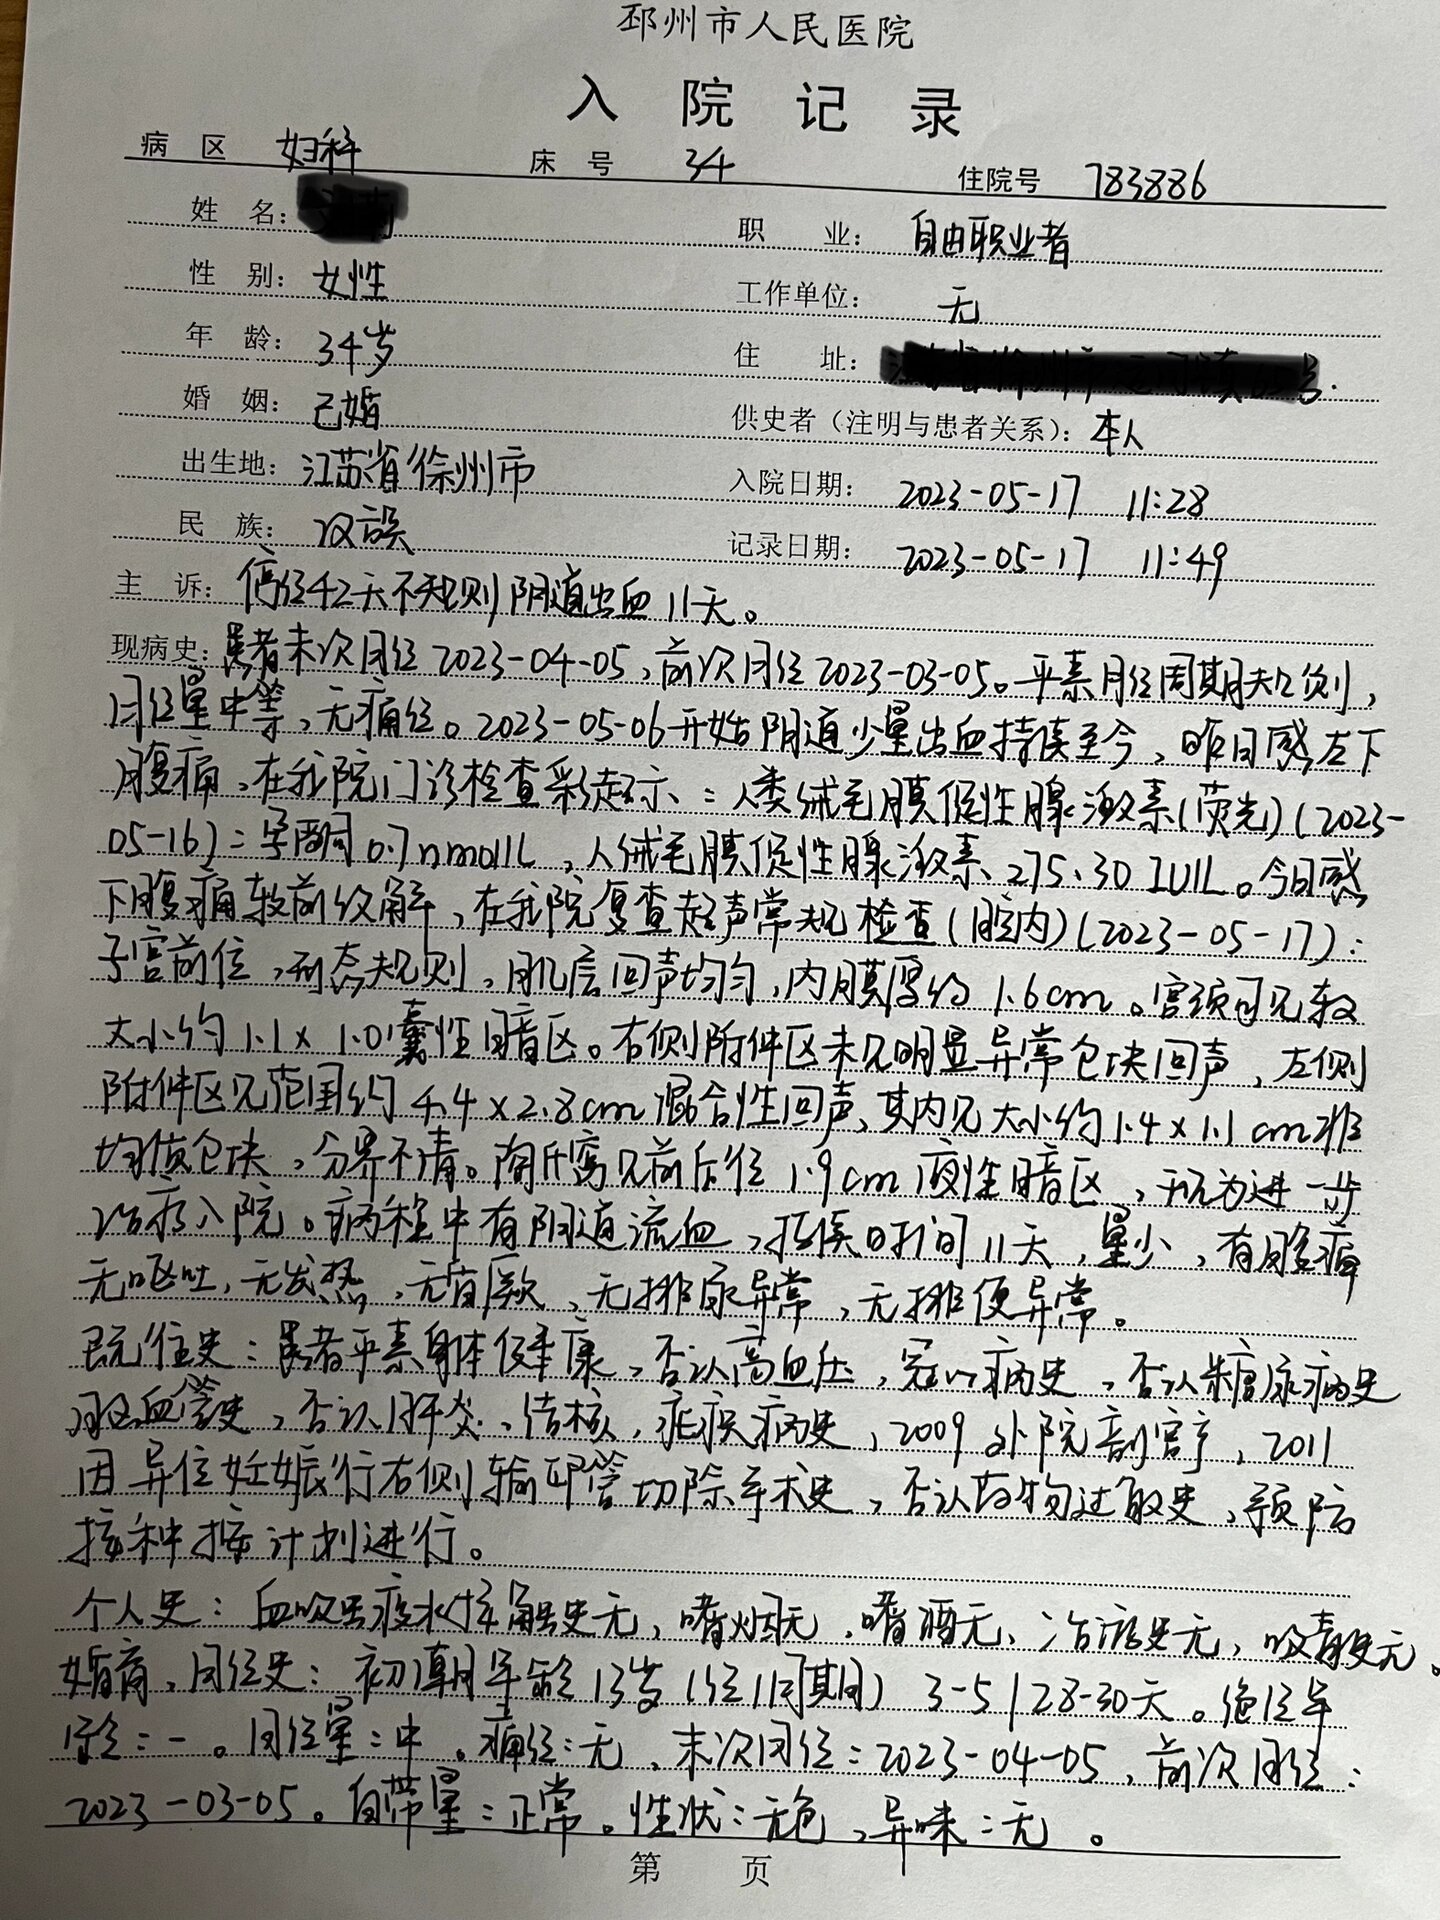 邳州市人民医院
入院记录
病区 妇科 床号 34 住院号 783886
姓名： 职业： 自由职业者
性别： 女性 工作单位： 无
年龄： 34岁 住址：
婚姻： 已婚 供史者（注明与患者关系）： 本人
出生地： 江苏省徐州市 入院日期： 2023-05-17 11:28
民族： 汉族 记录日期： 2023-05-17 11:49
主诉： 停经42天不规则阴道出血11天。
现病史： 患者末次月经2023-04-05，前次月经2023-03-05。平素月经周期规则，
月经量中等，无痛经。2023-05-06开始阴道少量出血持续至今，昨日感左下
腹痛，在我院门诊检查彩超示：人类绒毛膜促性腺激素(荧光)(2023-
05-16)：孕酮0.7nmol/L，人绒毛膜促性腺激素275.30IU/L。今日感
下腹痛较前缓解，在我院复查超声常规检查(腔内)(2023-05-17)：
子宫前位，形态规则，肌层回声均匀，内膜厚约1.6cm。宫颈可见较
大小约1.1×1.0囊性暗区。右侧附件区未见明显异常包块回声，左侧
附件区见范围约4.4×2.8cm混合性回声，其内见大小约1.4×1.1cm非
均质包块，分界不清。陶氏窝见前后径1.9cm液性暗区，现为进一步
治疗入院。病程中有阴道流血，持续时间11天，量少，有腹痛
无呕吐，无发热，无昏厥，无排尿异常，无排便异常。
既往史：患者平素身体健康，否认高血压，冠心病史，否认糖尿病史
脑血管史，否认肝炎，结核，疟疾病史，2009外院剖宫产，2011
因异位妊娠行右侧输卵管切除手术史，否认药物过敏史，预防
接种按计划进行。
个人史：血吸虫疫水接触史无，嗜烟无，嗜酒无，冶游史无，吸毒史无。
婚育，月经史：初潮年龄13岁(经/周期) 3-5/28-30天。绝经年
龄：-。月经量：中。痛经：无，末次月经：2023-04-05，前次月经：
2023-03-05。白带量：正常。性状：无色，异味：无。
第 页